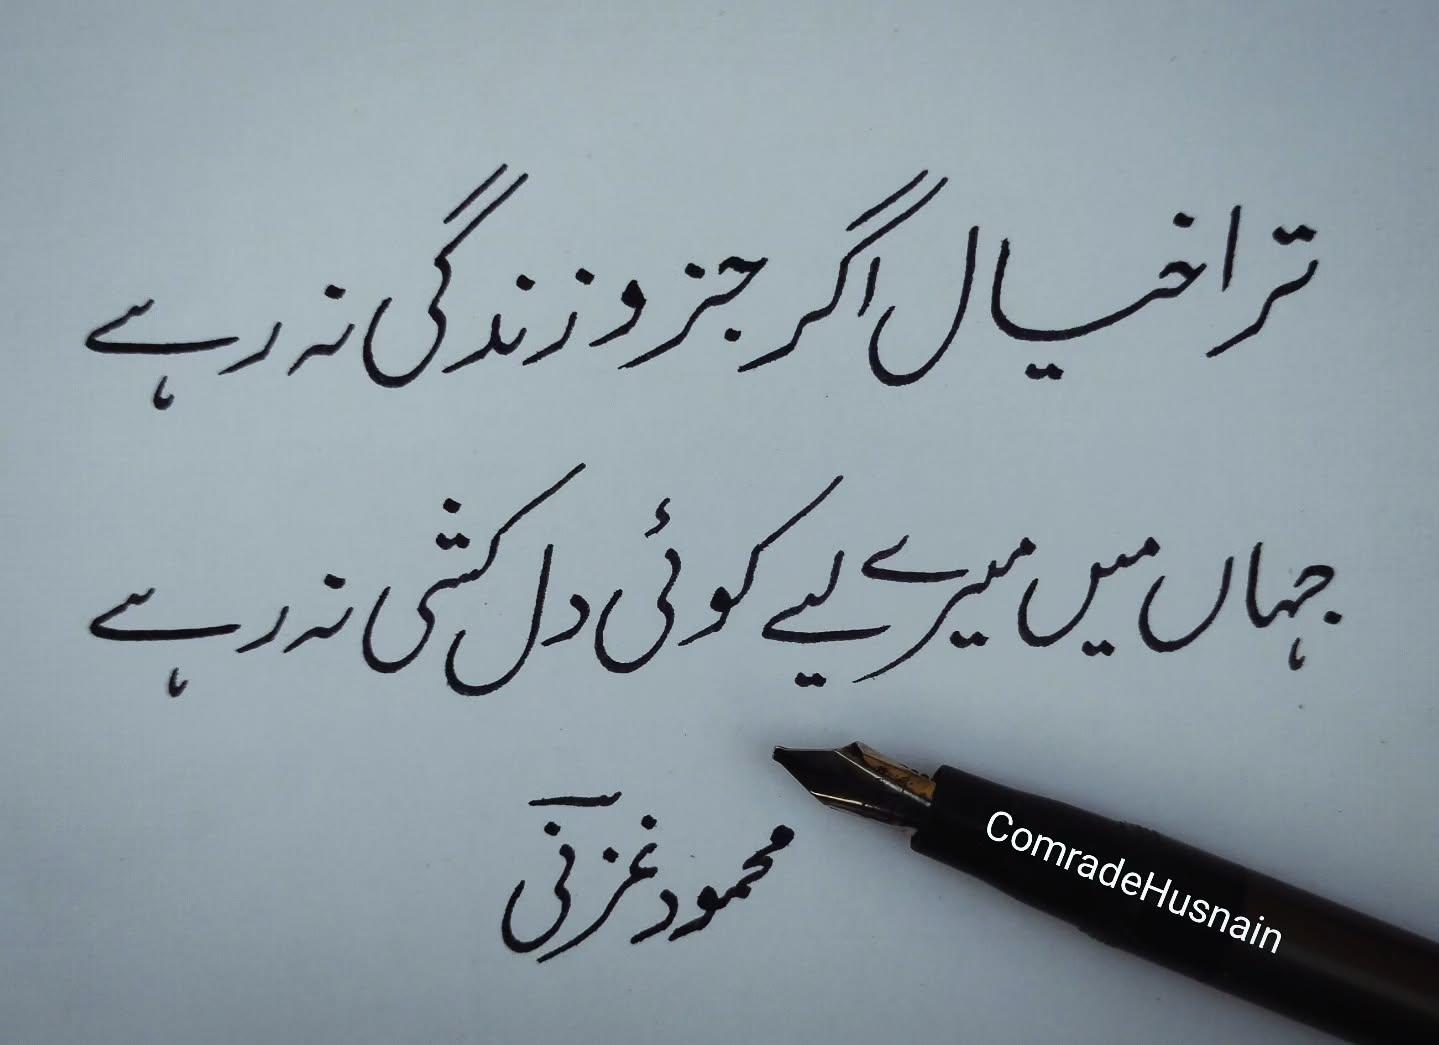 ترا خیال اگر جزو زندگی نہ رہے
جہاں میں میرے لیے کوئی دل کشی نہ رہے
محمود غزنی
ComradeHusnain